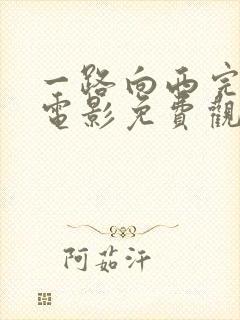 一路向西完
電影免費觀
阿茹汗